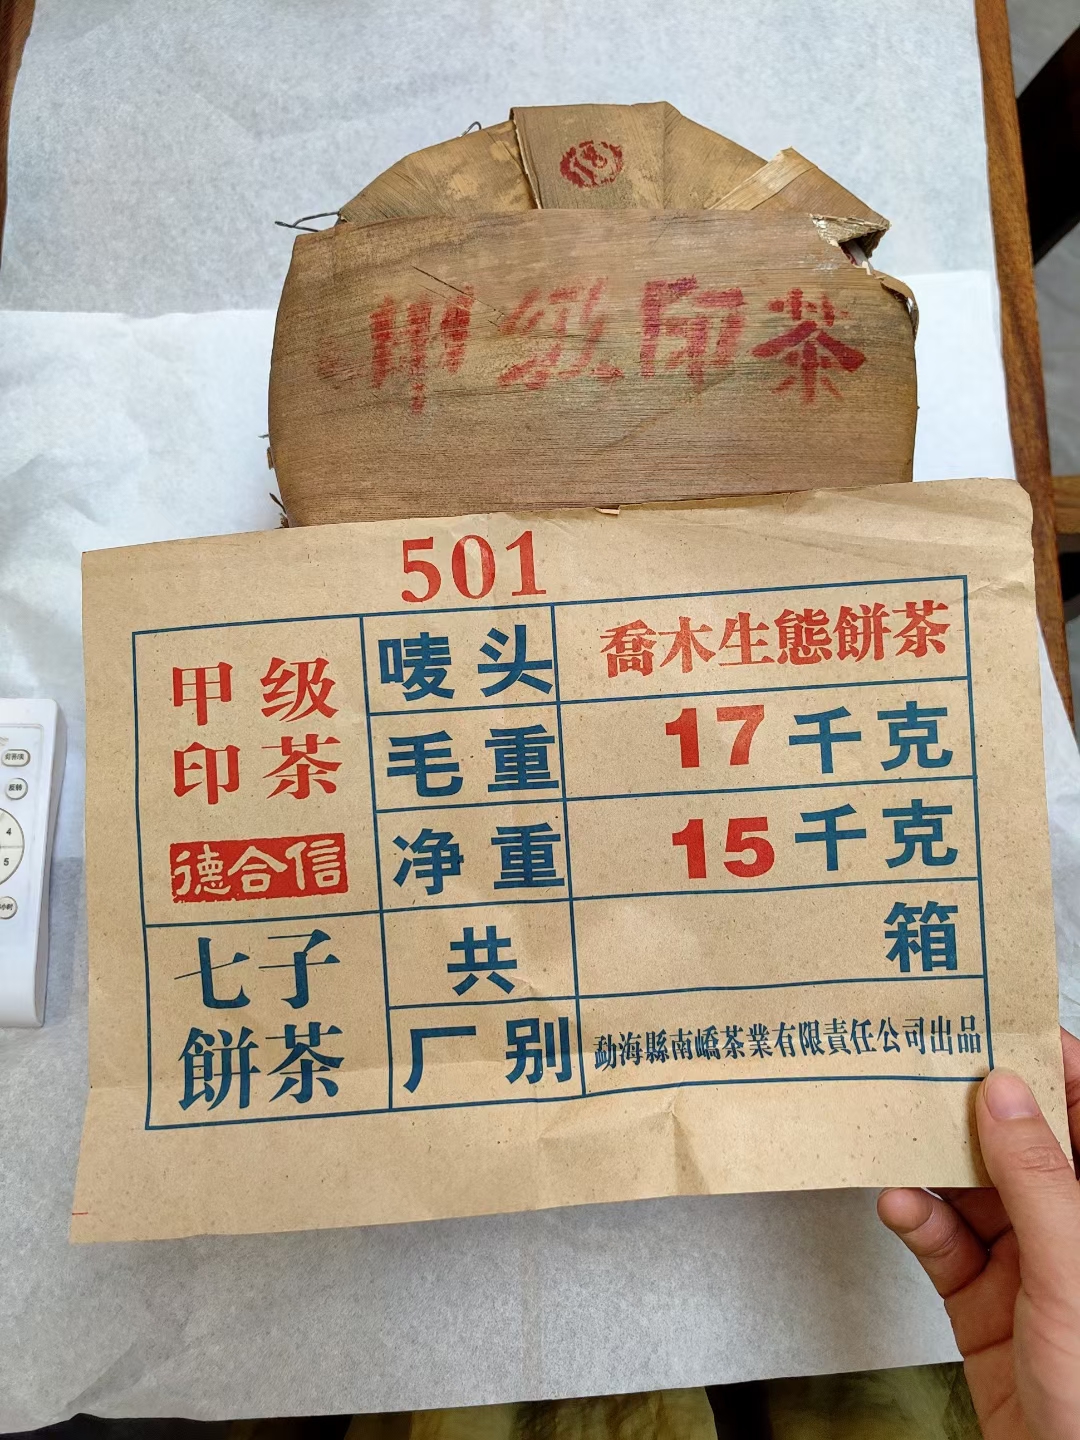 甲级印茶
501
甲级
印茶
德合信
七子
餅茶
唛头
喬木生態餅茶
毛重
17千克
净重
15千克
共
箱
厂别
勐海縣南嶠茶業有限責任公司出品
4
5